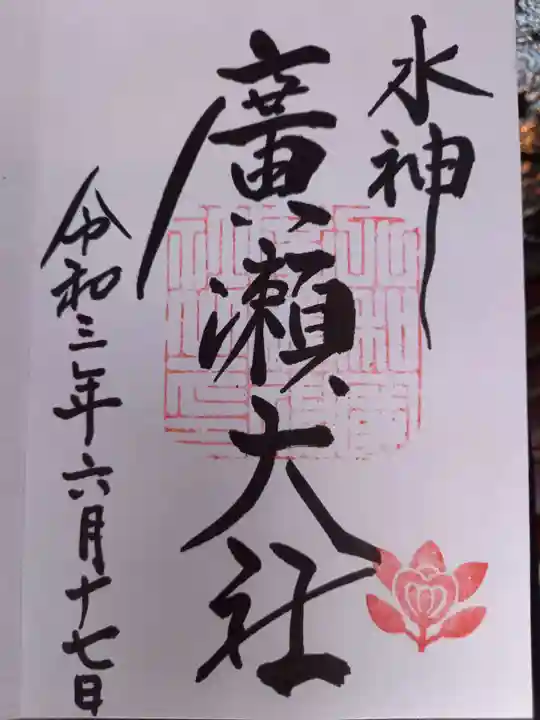 水神
廣瀬大社
令和三年六月十七日